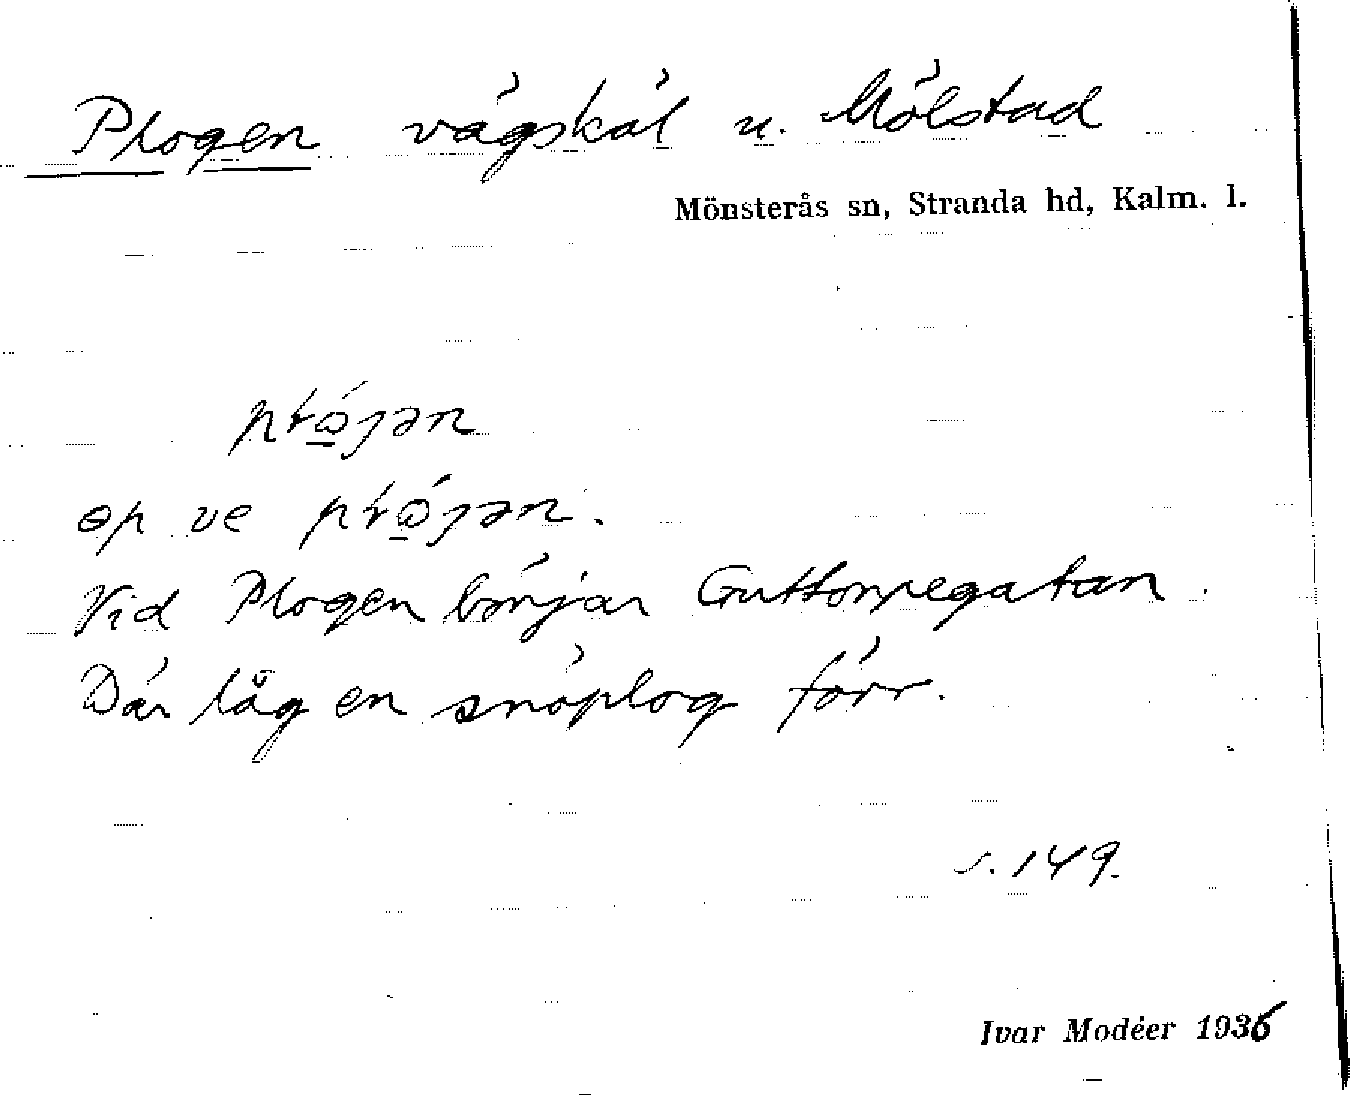 Plogen vägskäl u. Mölstad
Mönsterås sn, Stranda hd, Kalm. l.
Vid Plogen börjar Guttorpegatan.
Där låg en snöplog förr.
s. 149.
Ivar Modéer 1936